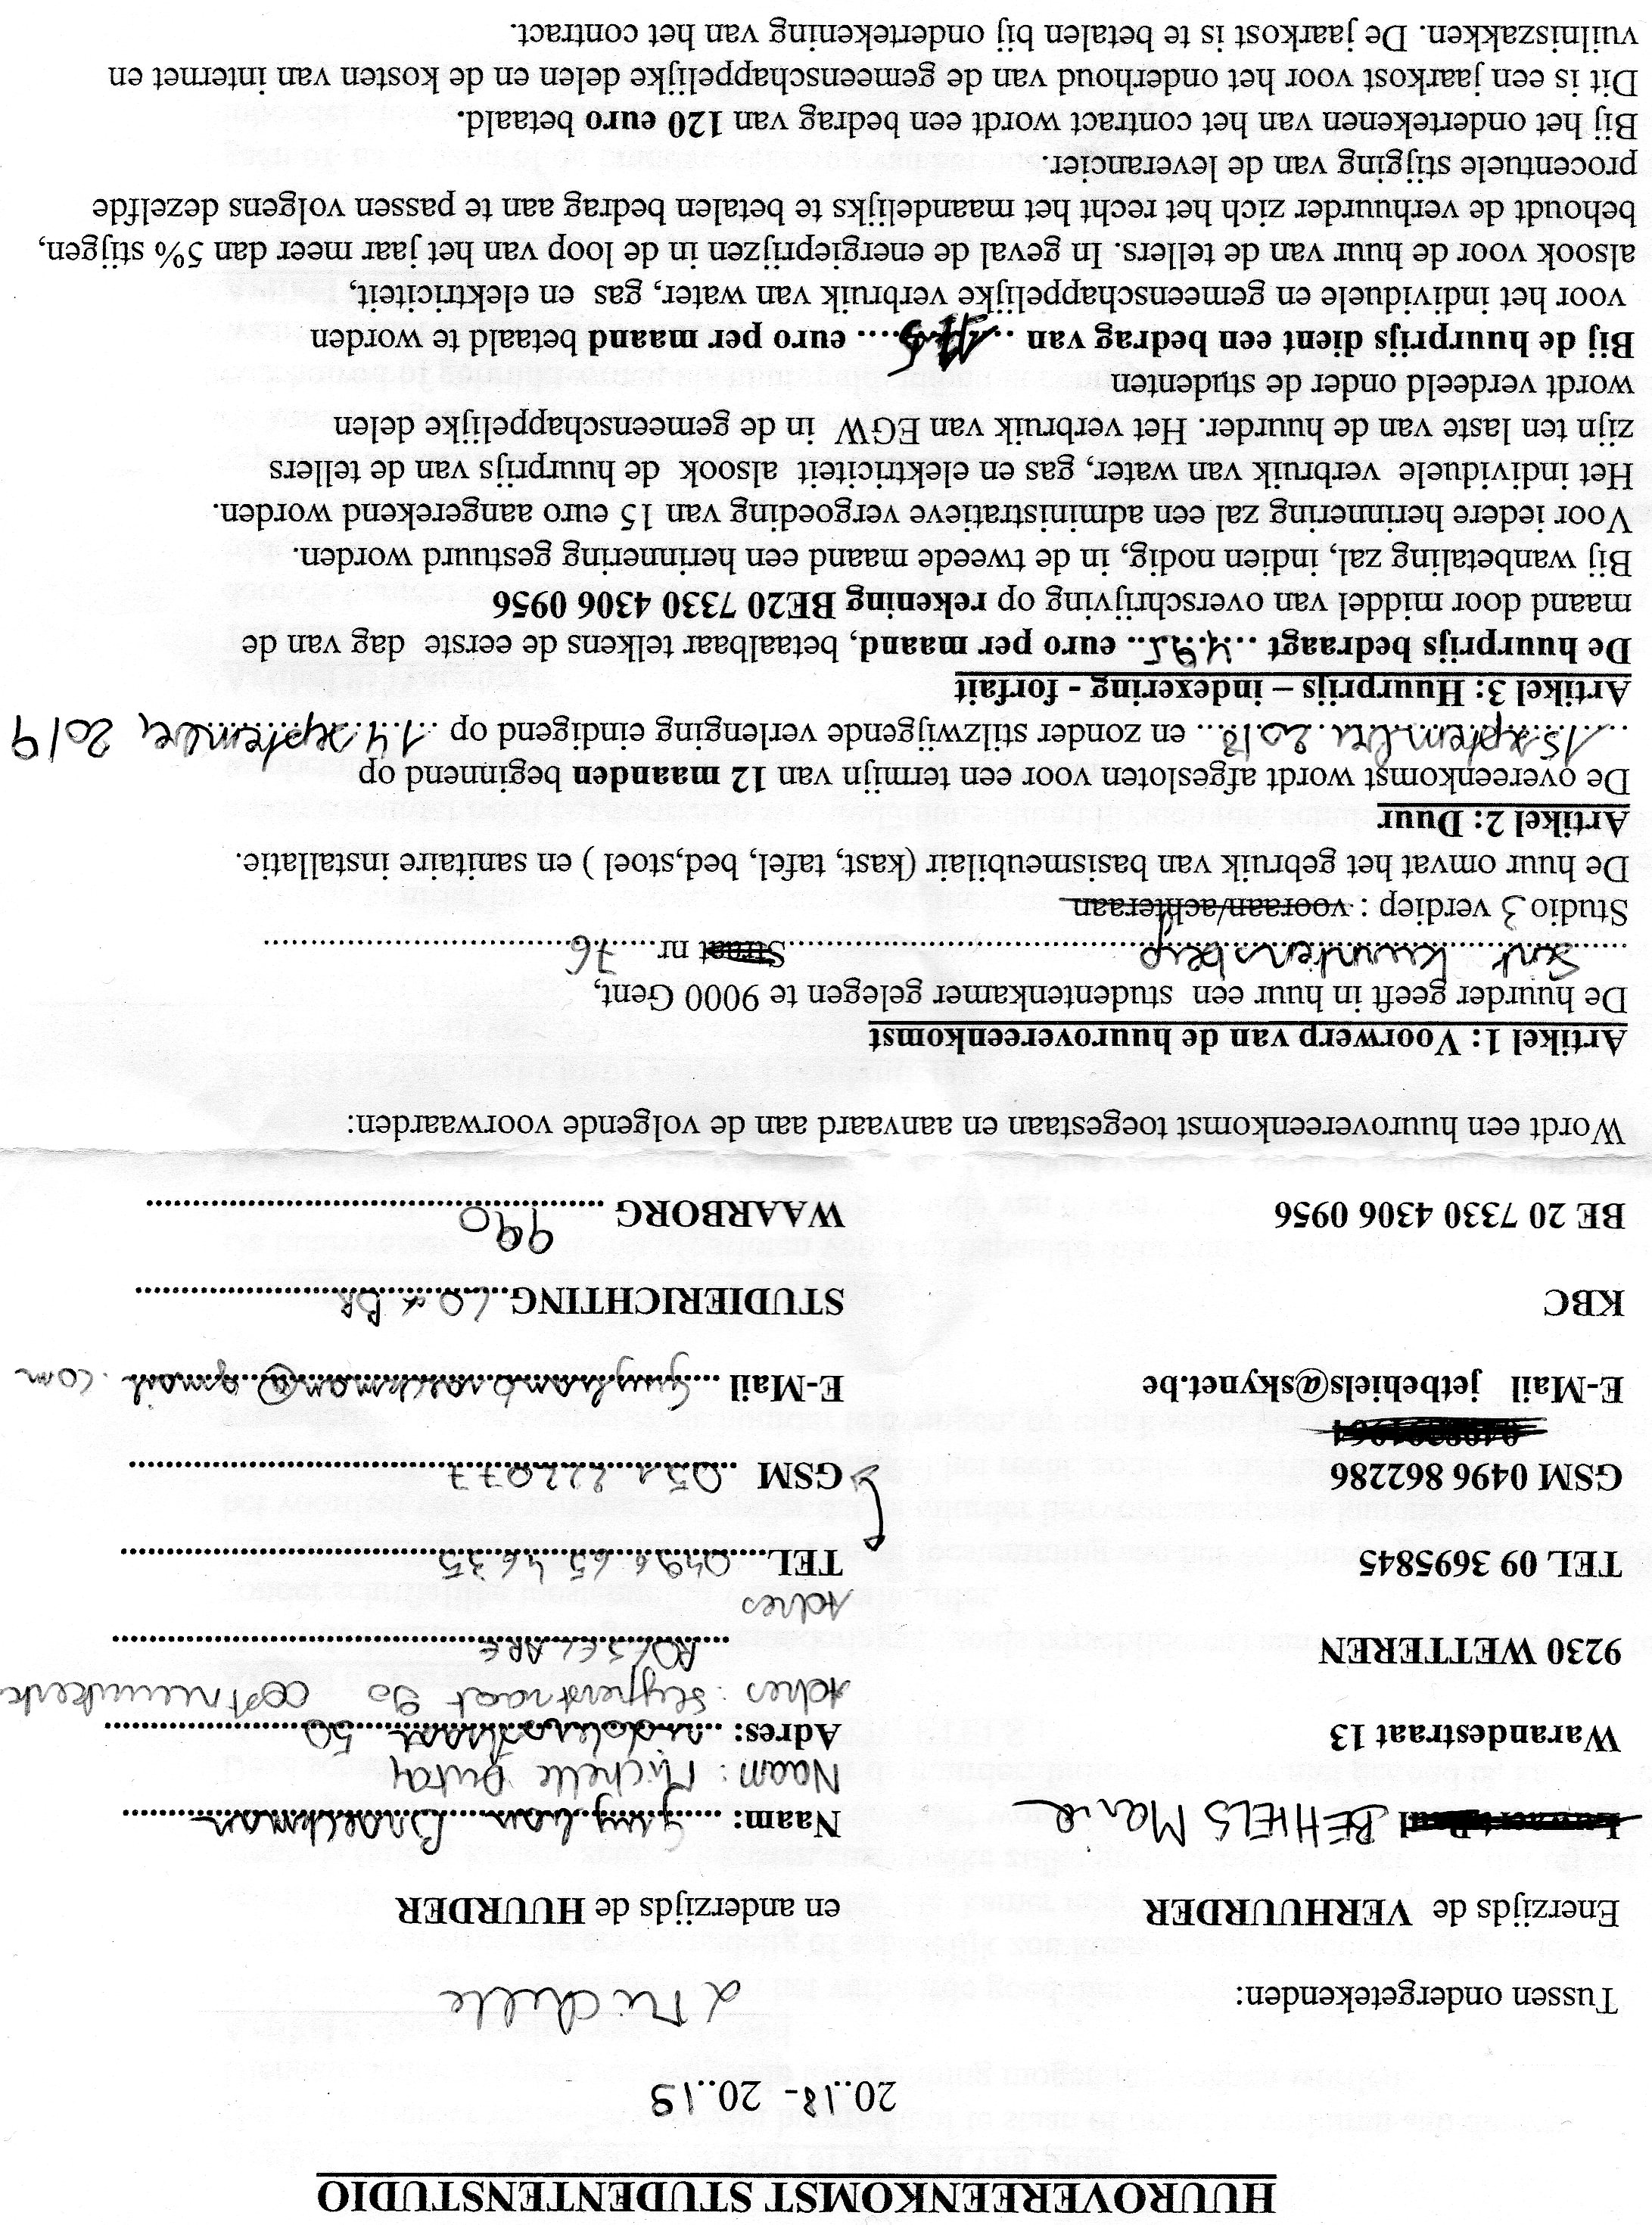 HUUROVEREENKOMST STUDENTENSTUDIO
20..18- 20..19
Tussen ondergetekenden:
& Michelle
Enerzijds de VERHUURDER
en anderzijds de HUURDER
BEHIELS Maria
Naam: Guylian Braeckman
Naam: Michelle Dutoy
Warandestraat 13
Adres: ridderstraat 50
Adres: Slyperstraat 90 Oostnieuwkerke
9230 WETTEREN
ROESELARE
Adres
TEL 09 3695845
TEL....0496 65 46 35
GSM 0496 862286
GSM ..051 222077
E-Mail jetbehiels@skynet.be
E-Mail ..Guylianbraeckman@gmail.com
KBC
STUDIERICHTING..LO & BR
BE 20 7330 4306 0956
WAARBORG ......990
Wordt een huurovereenkomst toegestaan en aanvaard aan de volgende voorwaarden:
Artikel 1: Voorwerp van de huurovereenkomst
De huurder geeft in huur een studentenkamer gelegen te 9000 Gent,
Sint Kwintensberg Straat nr....76
Studio 3 verdiep : vooraan/achteraan
De huur omvat het gebruik van basismeubilair (kast, tafel, bed,stoel ) en sanitaire installatie.
Artikel 2: Duur
De overeenkomst wordt afgesloten voor een termijn van 12 maanden beginnend op
...15 september 2018... en zonder stilzwijgende verlenging eindigend op ..14 september 2019
Artikel 3: Huurprijs – indexering - forfait
De huurprijs bedraagt ..495.. euro per maand, betaalbaar telkens de eerste dag van de
maand door middel van overschrijving op rekening BE20 7330 4306 0956
Bij wanbetaling zal, indien nodig, in de tweede maand een herinnering gestuurd worden.
Voor iedere herinnering zal een administratieve vergoeding van 15 euro aangerekend worden.
Het individuele verbruik van water, gas en elektriciteit alsook de huurprijs van de tellers
zijn ten laste van de huurder. Het verbruik van EGW in de gemeenschappelijke delen
wordt verdeeld onder de studenten
Bij de huurprijs dient een bedrag van ........ euro per maand betaald te worden
voor het individuele en gemeenschappelijke verbruik van water, gas en elektriciteit,
alsook voor de huur van de tellers. In geval de energieprijzen in de loop van het jaar meer dan 5% stijgen,
behoudt de verhuurder zich het recht het maandelijks te betalen bedrag aan te passen volgens dezelfde
procentuele stijging van de leverancier.
Bij het ondertekenen van het contract wordt een bedrag van 120 euro betaald.
Dit is een jaarkost voor het onderhoud van de gemeenschappelijke delen en de kosten van internet en
vuilniszakken. De jaarkost is te betalen bij ondertekening van het contract.